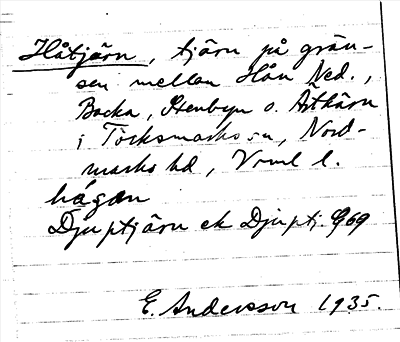 Håtjärn, tjärn på grän-
sen mellan Hån Ned.,
Backa, Stenbyn o. Ästkärn
i Töcksmarks sn, Nord-
marks hd, Vrml l.
hágən
Djuptjärn ek Djuptj. 969
E. Andersson 1935.